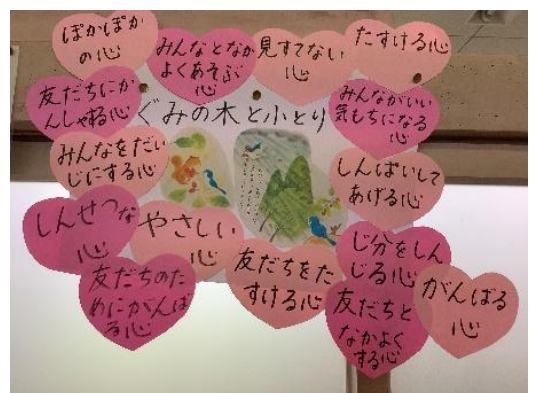 ぽかぽか
の心
みんなとなか
よくあそぶ
心
見すてない
心
たすける心
友だちにか
んしゃする心
ぐみの木と小とり
みんながいい
気もちになる
心
みんなをだい
じにする心
しんぱいして
あげる心
しんせつな
心
やさしい
心
友だちをた
すける心
じ分をしん
じる心
友だちのた
めにがんば
る心
友だちと
なかよく
する心
がんばる
心